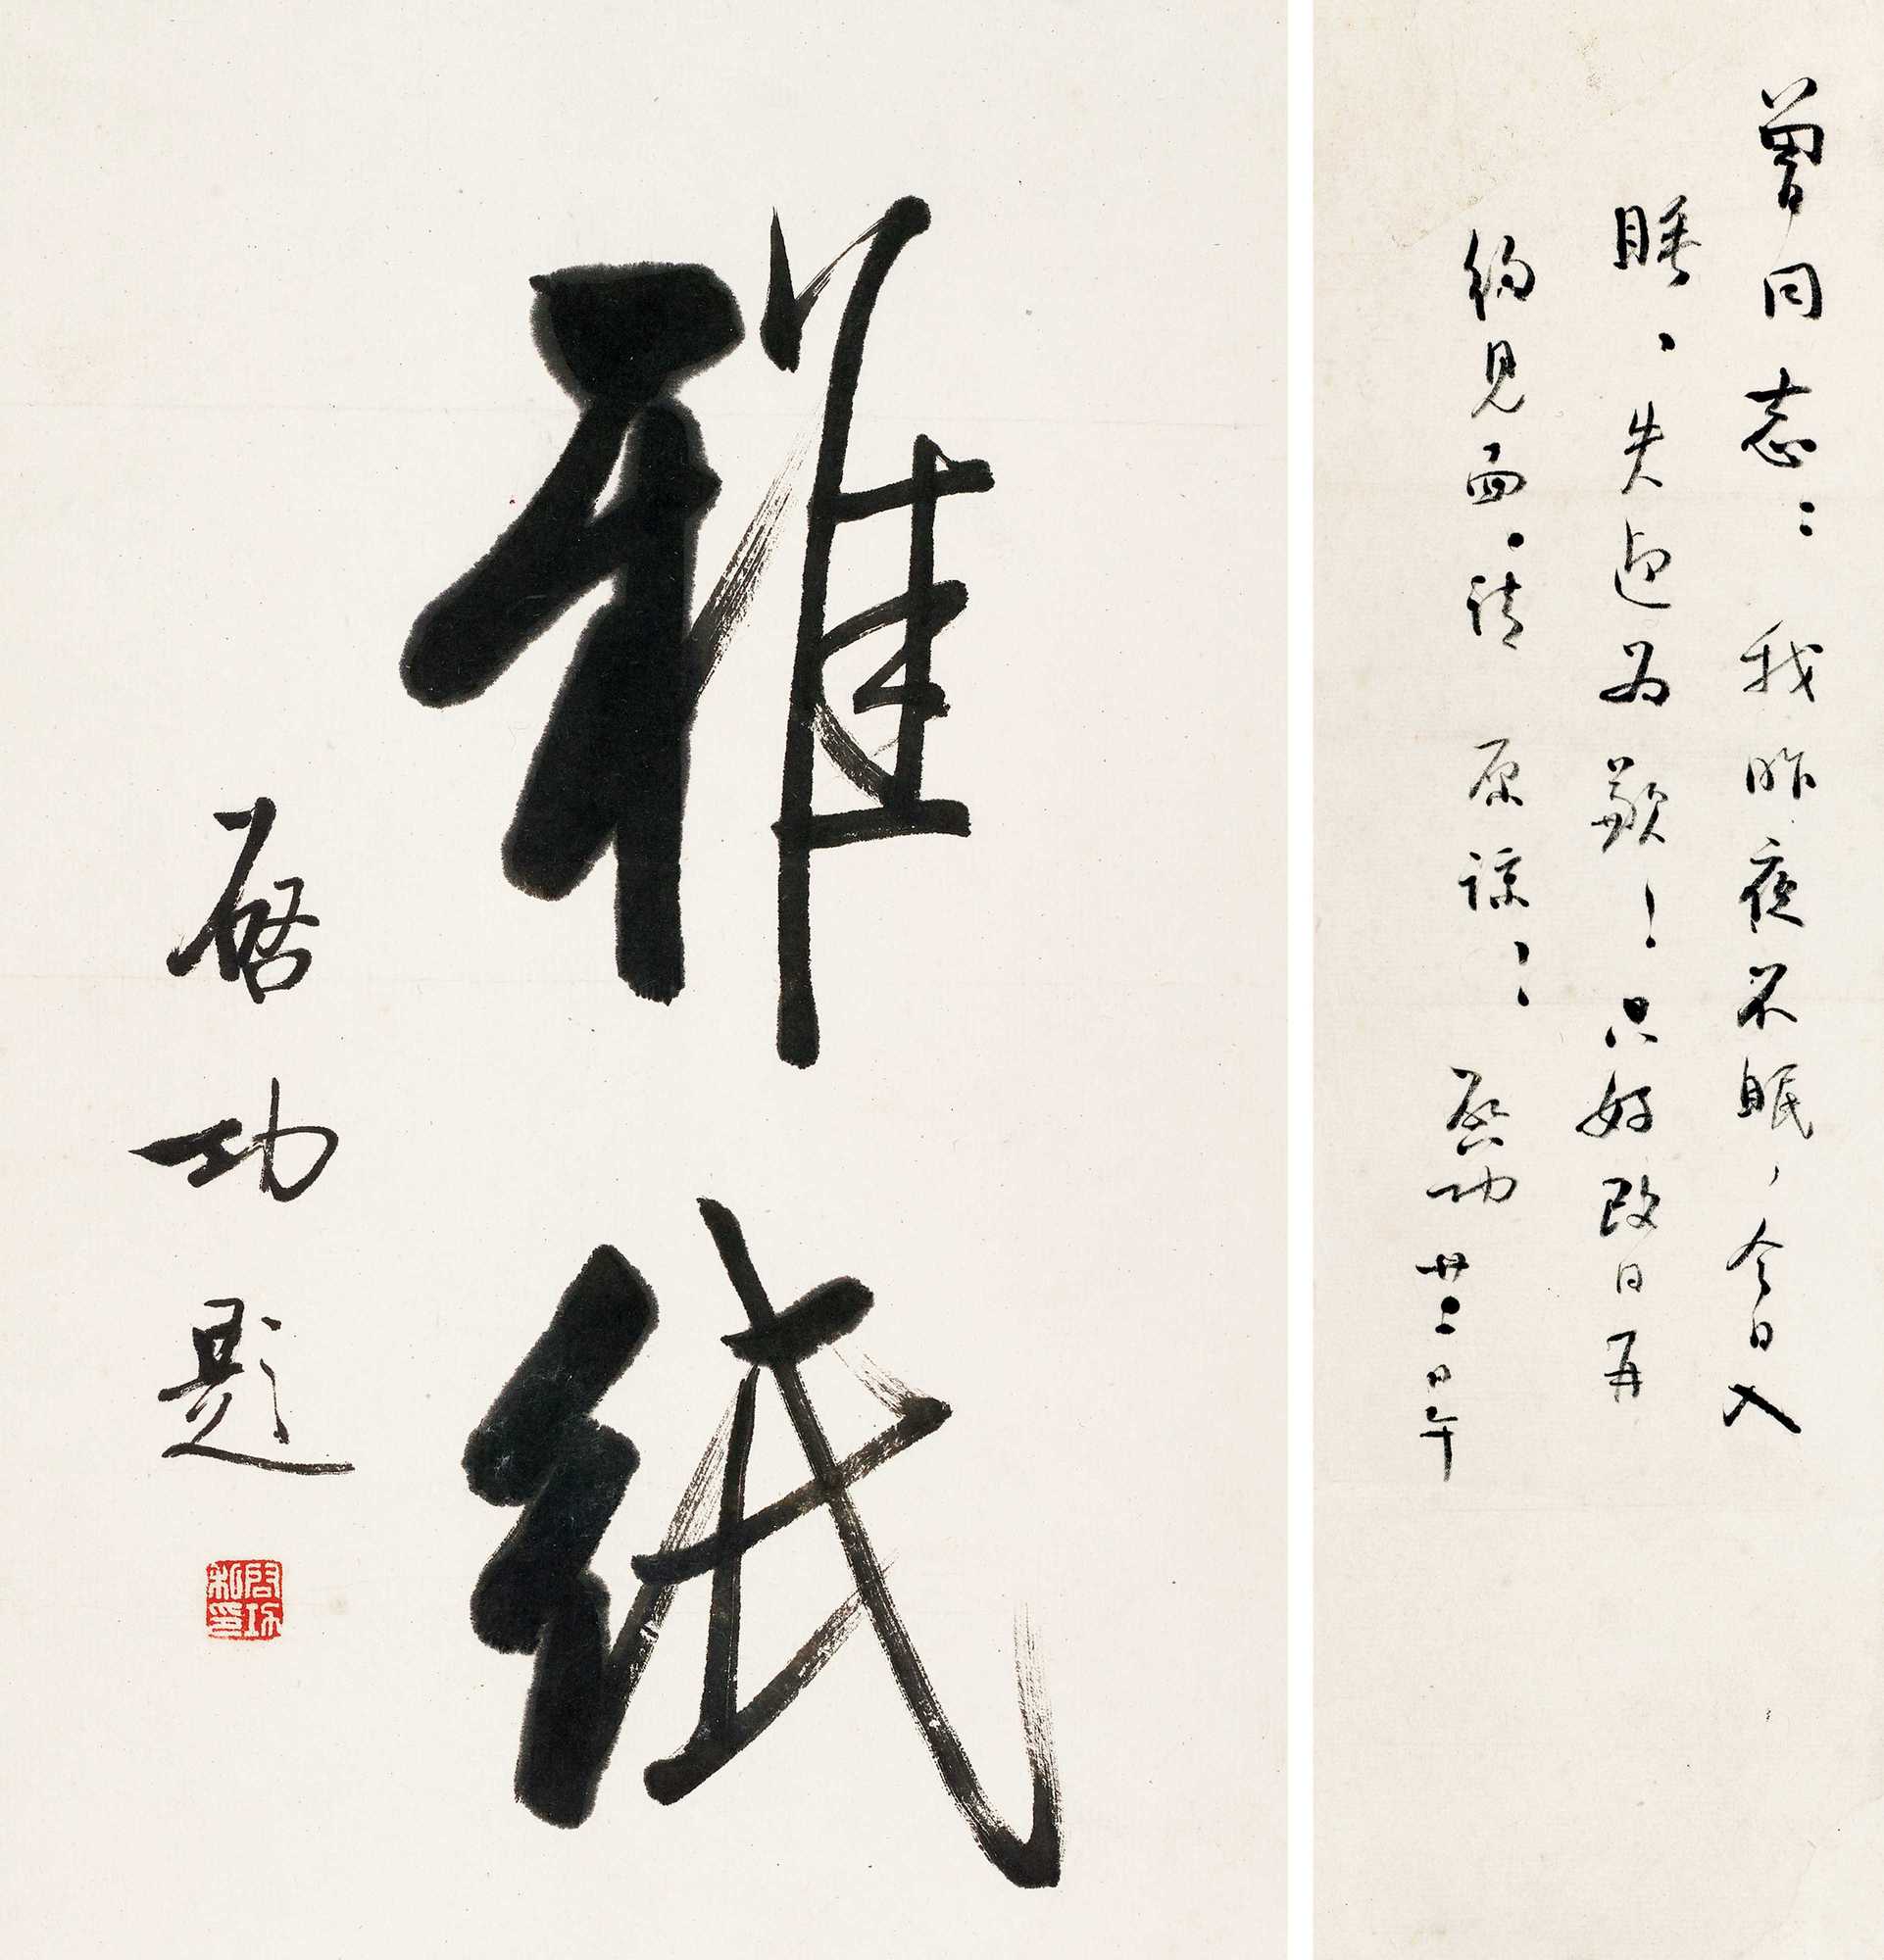 曾同志：我昨夜不眠，今日入
睡、失迎为歉！只好改日再
约见面。请原谅！啓功 廿二日午
雅纸
啓功题
启功
私印